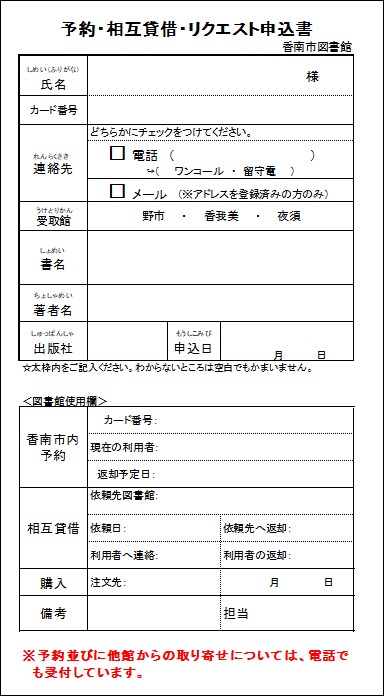 予約・相互貸借・リクエスト申込書
香南市図書館
しめい(ふりがな)
氏名
様
カード番号
どちらかにチェックをつけてください。
れんらくさき
連絡先
□ 電話 （ ）
↪( ワンコール ・ 留守電 )
□ メール (※アドレスを登録済みの方のみ)
うけとりかん
受取館
野市 ・ 香我美 ・ 夜須
しょめい
書名
ちょしゃめい
著者名
しゅっぱんしゃ
出版社
もうしこみび
申込日
月 日
☆太枠内をご記入ください。わからないところは空白でもかまいません。
＜図書館使用欄＞
香南市内
予約
カード番号:
現在の利用者:
返却予定日:
相互貸借
依頼先図書館:
依頼日:
依頼先へ返却:
利用者へ連絡:
利用者の返却:
購入
注文先:
月 日
備考
担当
※予約並びに他館からの取り寄せについては、電話で
も受付しています。